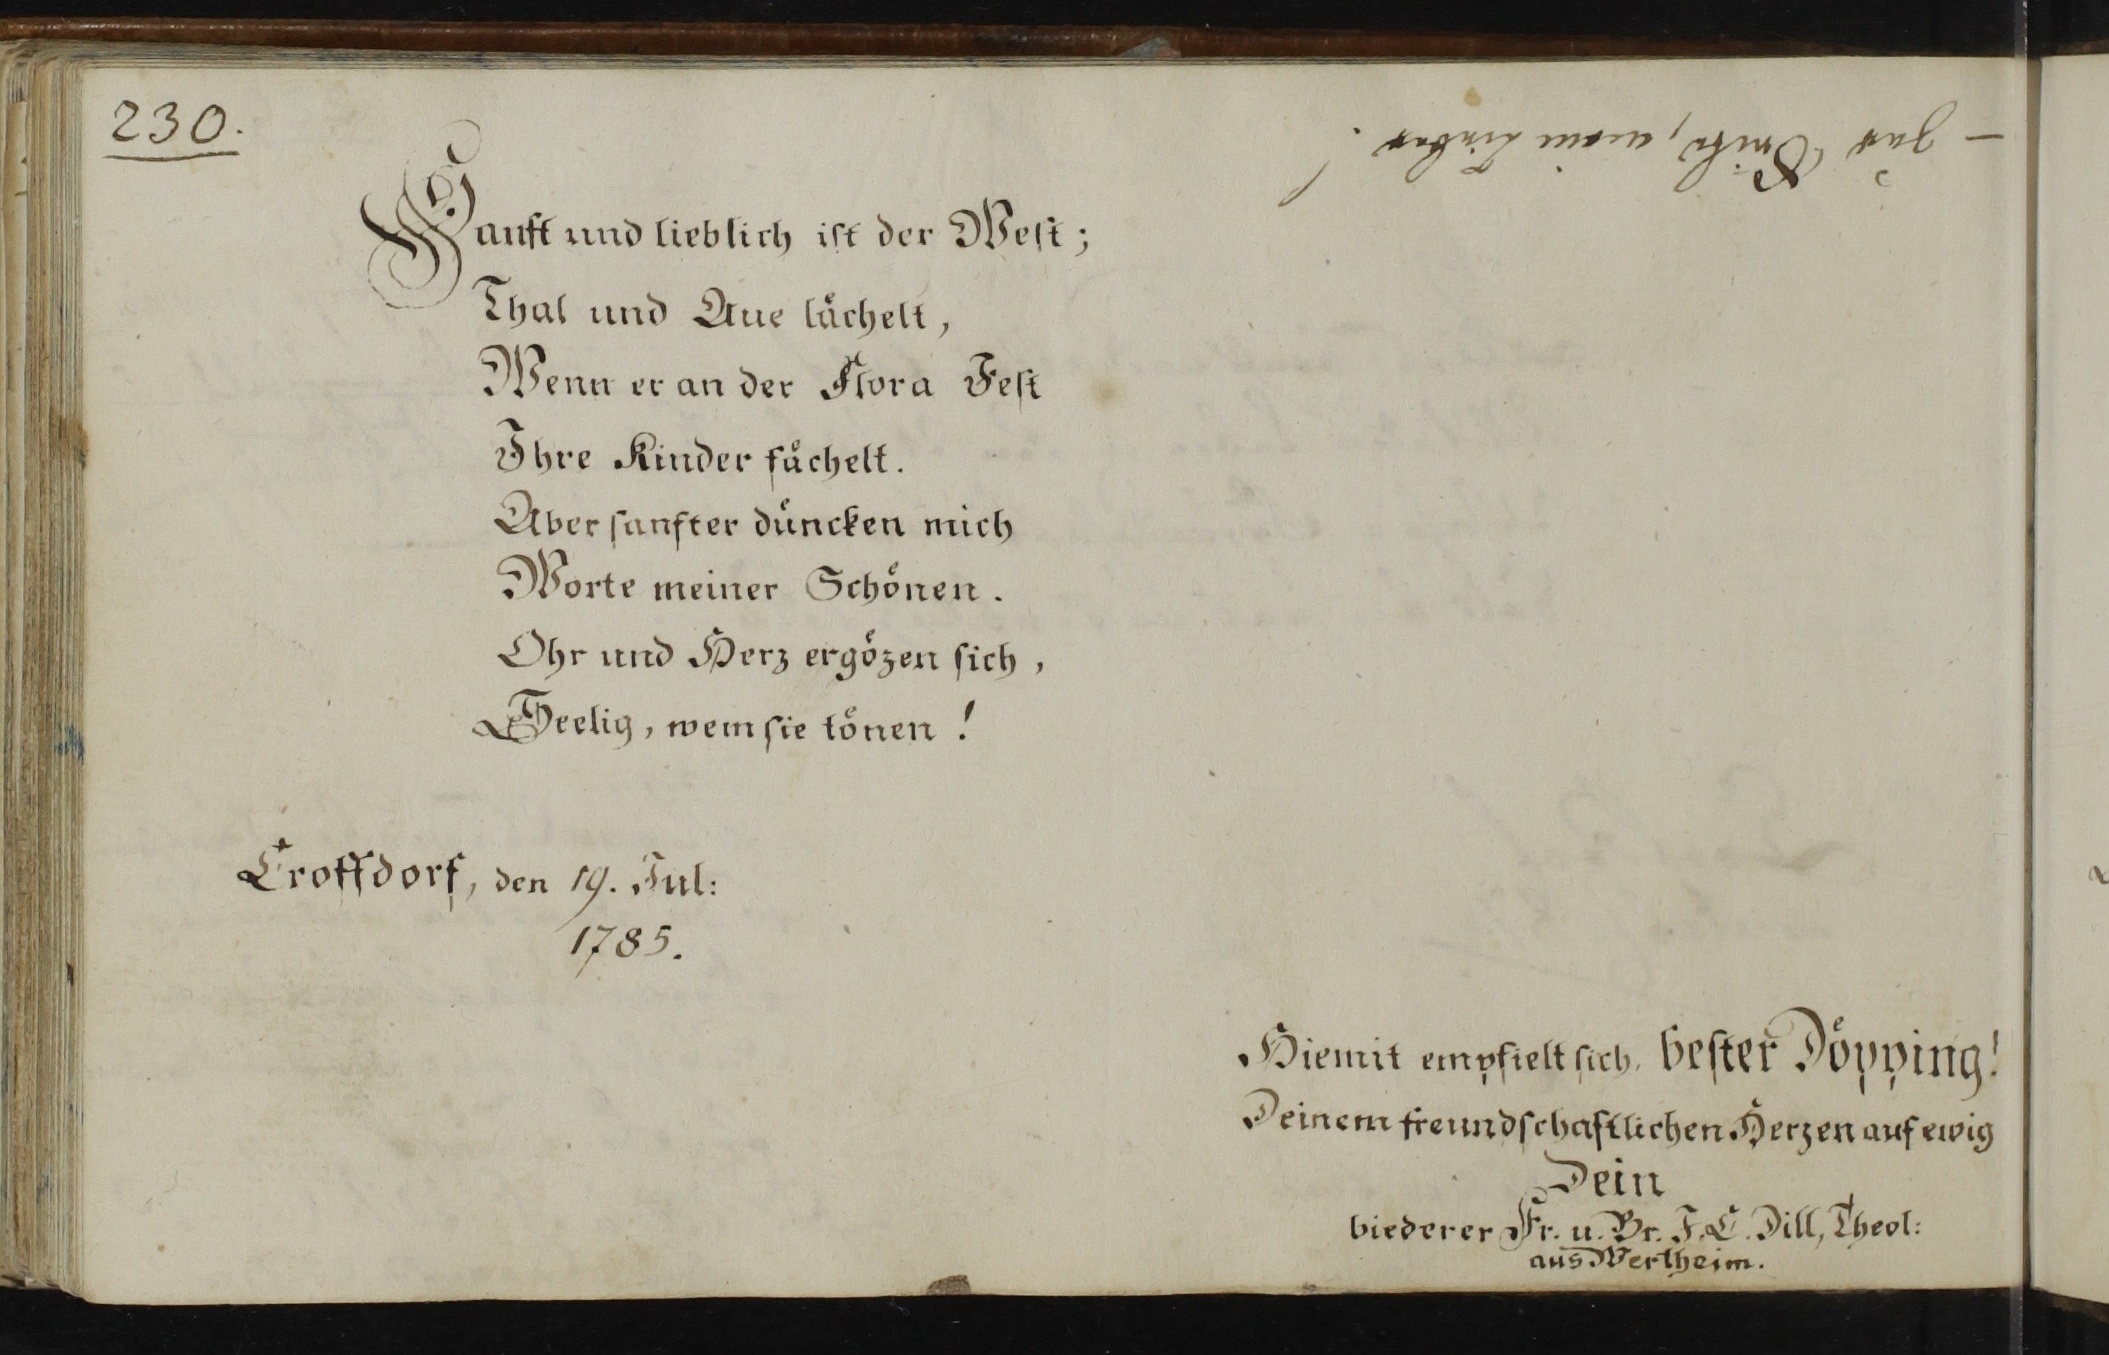 230.
Sanft und lieblich ist der West;
Thal und Aue lächelt,
Wenn er an der Flora Fest
Ihre Kinder fächelt.
Aber sanfter düncken mich
Worte meiner Schönen.
Ohr und Herz ergözen sich,
Seelig, wem sie tönen!
Croffdorf, den 19. Jul:
1785.
Hiemit empfielt sich, bester Döpping!
Deinem freundschaftlichen Herzen auf ewig
Dein
biederer Fr. u. Br. J. C. Dill, Theol:
aus Wertheim.